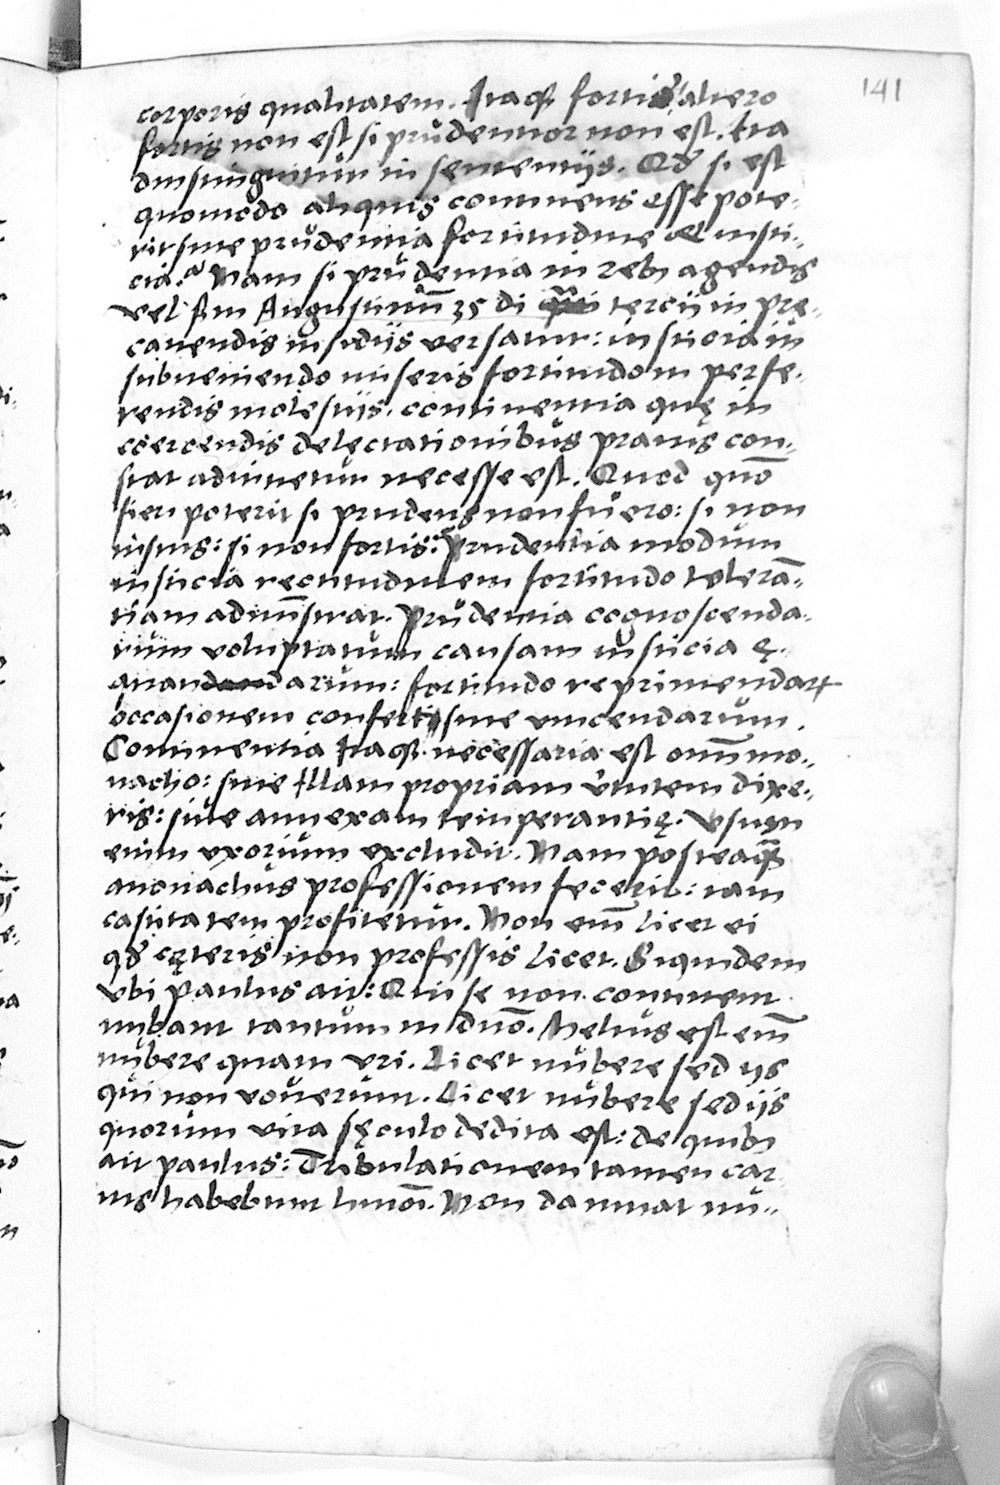 141
corporis qualitatem. Itaqꝫ fortis altero
fortis non est si prudentior non est. ita
distinguitur in sententijs. Qđ si est
quomodo aliquis continens esse pote-
rit sine prudentia fortitudine et iusti-
cia? Nam si prudentia in rebꝫ agendis
vel scďm Augustinū 35 di tercij in prę-
cauendis insidijs versatur: iusticia in
subueniendo miseris fortitudo in perfe-
rendis molestijs. continentia quę in
coercendis delectationibus prauis con-
stat adiunetur necesse est. Quod quō
fieri poterit si prudens non fuero: si non
iustus: si non fortis: Prudentia modum
iusticia rectitudinem fortitudo tolerā-
tiam adm̄istrat. Prudentia cognoscenda-
rum voluptatum causam iusticia ę-
quandarum: fortitudo reprimendarꝝ
occasionem confert siue vincendarum.
Continentia itaqꝫ necessaria est om̄i mo-
nacho: siue illam propriam v̓tutem dixe-
ris: siue annexam temperantię. Vsum
enim vxorium excludit. Nam posteaqꝫ̄
monachus professionem fecerit: iam
castitatem profitetur. Non em̄ licet ei
qđ cęteris non professis licet. Siquidem
vbi paulus ait: Qui se non continent
nubant tantum in dn̄o. Melius est em̄
nubere quam vri. Licet nubere sed ijs
qui non vouerunt. Licet nubere sed ijs
quorum vita sęculo dedita est: de quibꝫ
ait paulus: Tribulationem tamen car
nis habebunt hm̄oi. Non damnat nu-